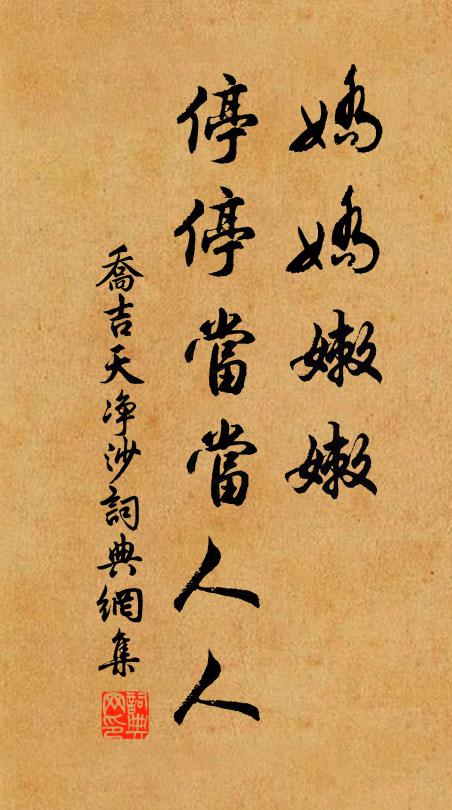 嬌嬌嫩嫩
停停當當人人
喬吉天净沙詞典網集
詞典网印